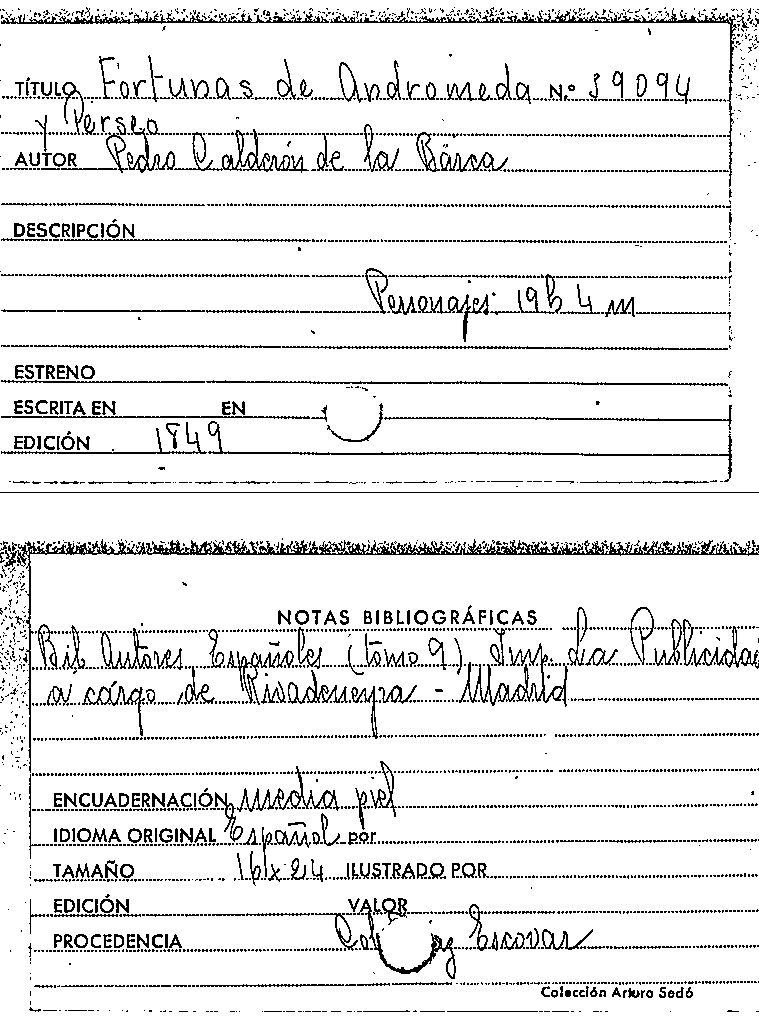 TÍTULO Fortunas de Andromeda N.º 39094
y Perseo
AUTOR Pedro Calderón de la Barca
DESCRIPCIÓN
Personajes: 19h 4 m
ESTRENO
ESCRITA EN EN
EDICIÓN 1849
NOTAS BIBLIOGRÁFICAS
Bib Autores Españoles (tomo 9) Imp. La Publicidad
a cargo de Rivadeneyra - Madrid
ENCUADERNACIÓN media piel
IDIOMA ORIGINAL Español por
TAMAÑO 16 x 24 ILUSTRADO POR
EDICIÓN VALOR
PROCEDENCIA Escovar
Colección Arturo Sedó